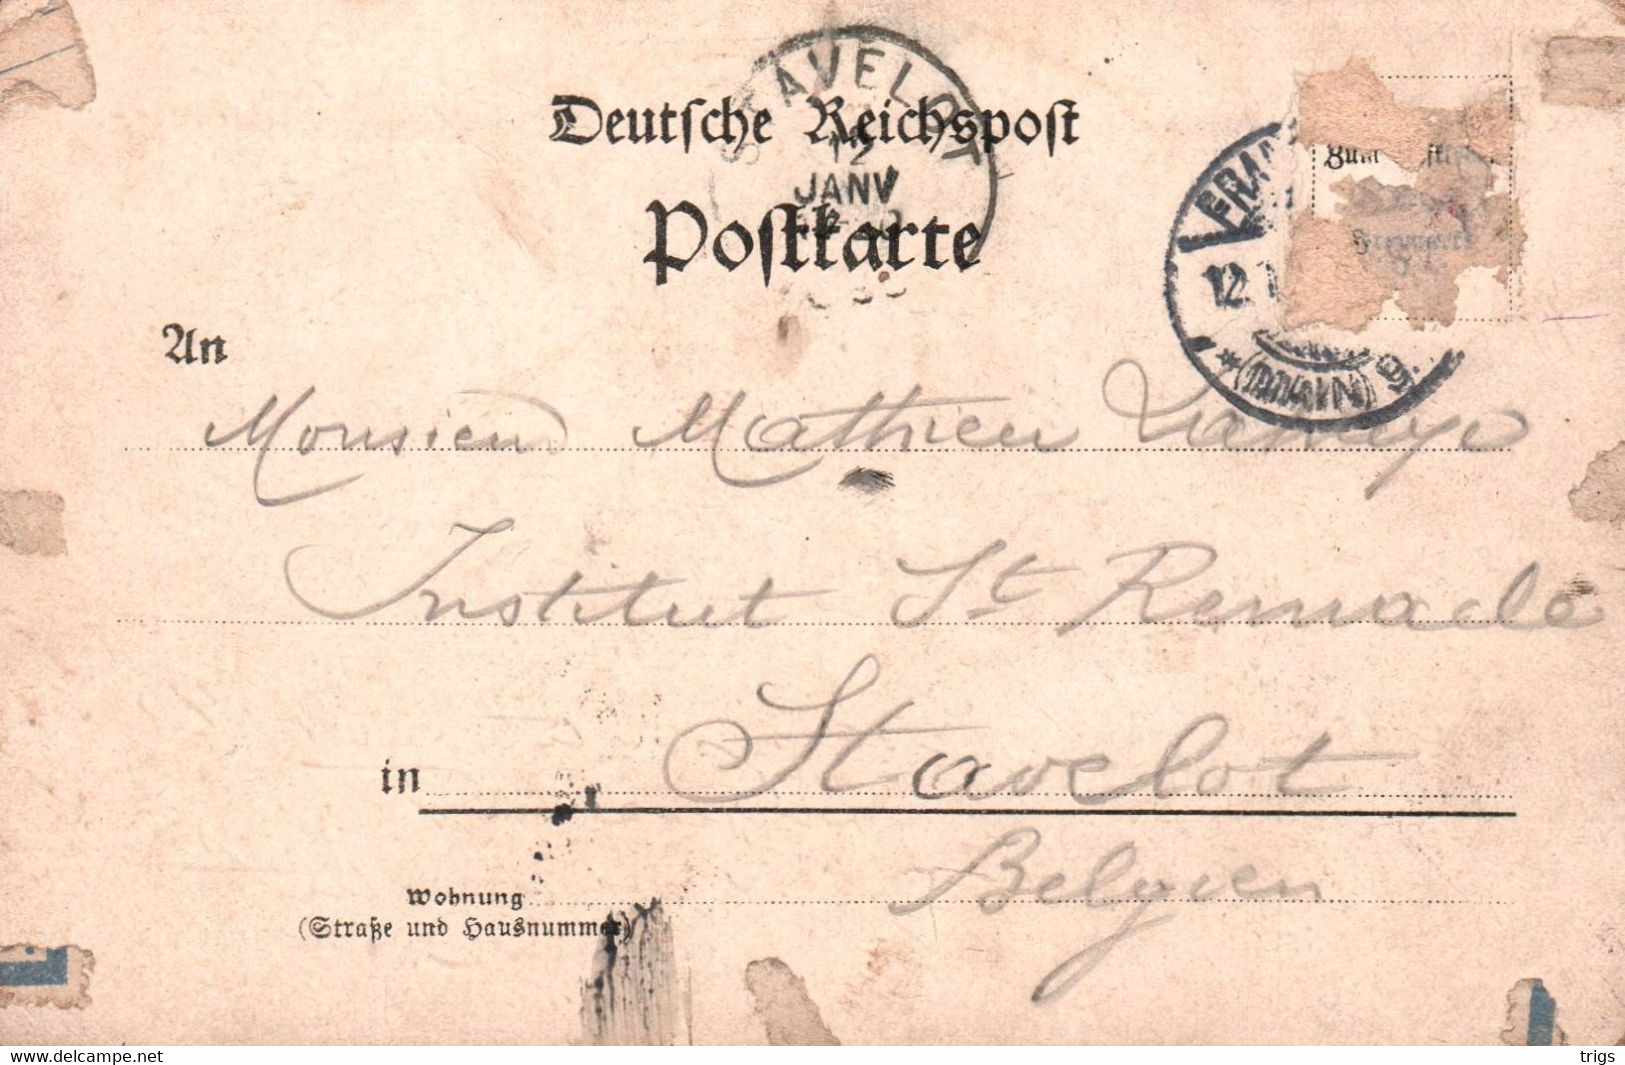 STAVELOT
12
JANV
Deutsche Reichspost
Postkarte
FRAN
12. 1
* (MAIN) 9.
Zum
An
Monsieur Mathieu
Institut St Remacle
in Stavelot
Belgien
Wohnung
(Straße und Hausnummer)
www.delcampe.net
trigs